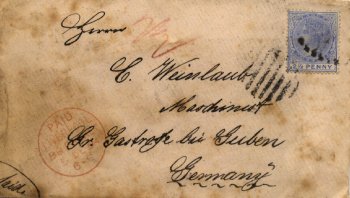 Herrn
C. Weinlaub
Maschinist
Gr. Gastrose bei Guben
Germany
PAID
PENNY